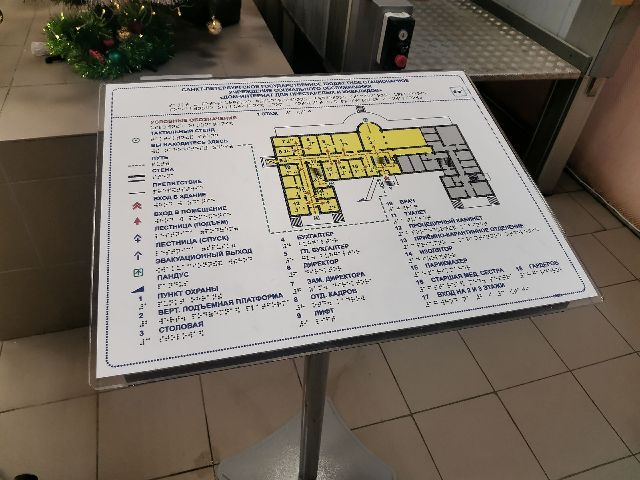 САНКТ-ПЕТЕРБУРГСКОЕ ГОСУДАРСТВЕННОЕ БЮДЖЕТНОЕ СТАЦИОНАРНОЕ
УЧРЕЖДЕНИЕ СОЦИАЛЬНОГО ОБСЛУЖИВАНИЯ
«ДОМ-ИНТЕРНАТ ДЛЯ ПРЕСТАРЕЛЫХ И ИНВАЛИДОВ»
1 ЭТАЖ
УСЛОВНЫЕ ОБОЗНАЧЕНИЯ
ТАКТИЛЬНЫЙ СТЕНД
ВЫ НАХОДИТЕСЬ ЗДЕСЬ
ПУТЬ
СТЕНА
ПРЕПЯТСТВИЕ
ВХОД В ЗДАНИЕ
ВХОД В ПОМЕЩЕНИЕ
ЛЕСТНИЦА (ПОДЪЕМ)
ЛЕСТНИЦА (СПУСК)
ЭВАКУАЦИОННЫЙ ВЫХОД
ПАНДУС
1 ПУНКТ ОХРАНЫ
2 ВЕРТ. ПОДЪЕМНАЯ ПЛАТФОРМА
3 СТОЛОВАЯ
4 БУХГАЛТЕР
5 ГЛ. БУХГАЛТЕР
6 ДИРЕКТОР
7 ЗАМ. ДИРЕКТОРА
8 ОТД. КАДРОВ
9 ЛИФТ
10 ВРАЧ
11 ТУАЛЕТ
12 ПРОЦЕДУРНЫЙ КАБИНЕТ
13 ПРИЕМНО-КАРАНТИННОЕ ОТДЕЛЕНИЕ
14 ИЗОЛЯТОР
15 ПАРИКМАХЕР
16 СТАРШАЯ МЕД. СЕСТРА
17 ВХОД НА 2 И 3 ЭТАЖИ
18